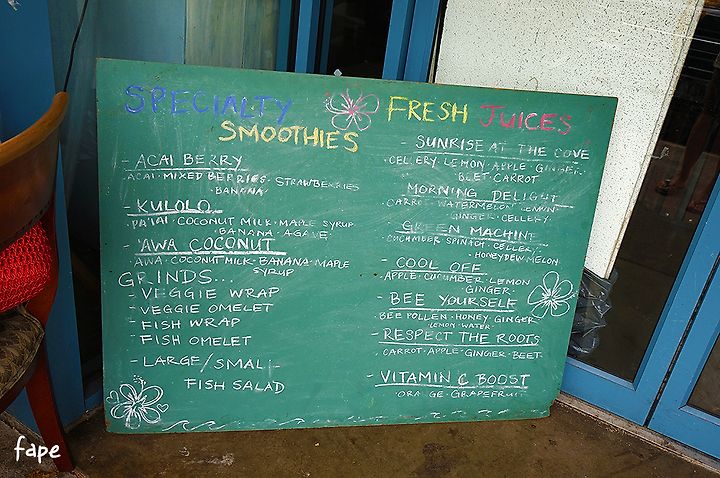 SPECIALTY
SMOOTHIES
- ACAI BERRY
ACAI · MIXED BERRIES · STRAWBERRIES
BANANA
- KULOLO
PA'IAI · COCONUT MILK · MAPLE SYRUP
· BANANA · AGAVE
- 'AWA COCONUT
AWA · COCONUT MILK · BANANA · MAPLE
SYRUP
GRINDS...
- VEGGIE WRAP
- VEGGIE OMELET
- FISH WRAP
- FISH OMELET
- LARGE/SMALL
FISH SALAD
FRESH JUICES
- SUNRISE AT THE COVE
CELLERY · LEMON · APPLE · GINGER ·
BEET · CARROT
- MORNING DELIGHT
CARROT · WATERMELON · LEMON ·
GINGER · CELLERY ·
- GREEN MACHINE
CUCUMBER · SPINACH · CELLERY ·
HONEYDEW MELON
- COOL OFF
APPLE · CUCUMBER · LEMON
GINGER ·
- BEE YOURSELF
BEE POLLEN · HONEY · GINGER
LEMON · WATER ·
- RESPECT THE ROOTS
CARROT · APPLE · GINGER · BEET
- VITAMIN C BOOST
· ORA GE · GRAPEFRUIT
fape